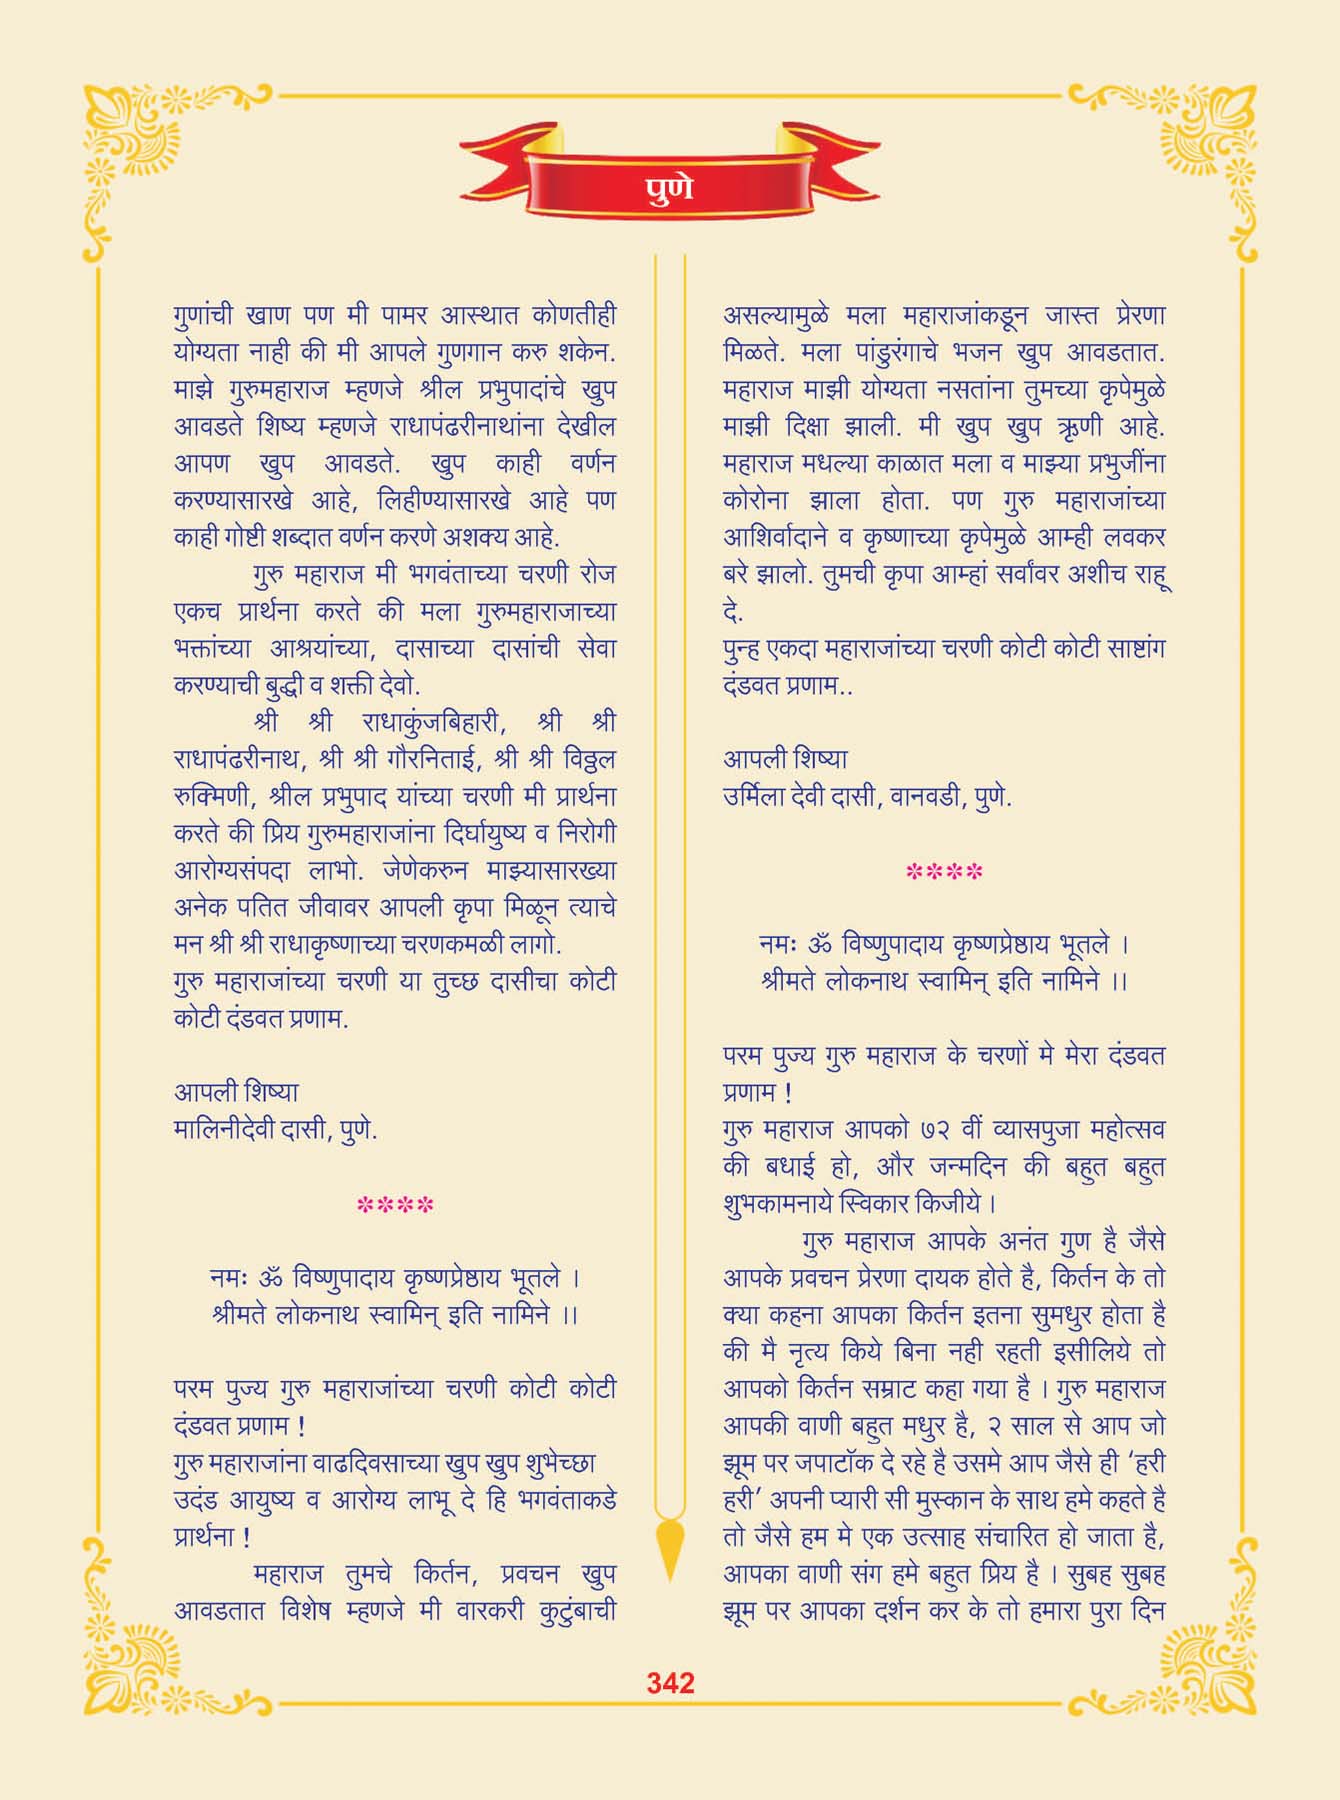 पुणे
गुणांची खाण पण मी पामर आस्थात कोणतीही
योग्यता नाही की मी आपले गुणगान करु शकेन.
माझे गुरुमहाराज म्हणजे श्रील प्रभुपादांचे खुप
आवडते शिष्य म्हणजे राधापंढरीनाथांना देखील
आपण खुप आवडते. खुप काही वर्णन
करण्यासारखे आहे, लिहीण्यासारखे आहे पण
काही गोष्टी शब्दात वर्णन करणे अशक्य आहे.
गुरु महाराज मी भगवंताच्या चरणी रोज
एकच प्रार्थना करते की मला गुरुमहाराजाच्या
भक्तांच्या आश्रयांच्या, दासाच्या दासांची सेवा
करण्याची बुद्धी व शक्ती देवो.
श्री श्री राधाकुंजबिहारी, श्री श्री
राधापंढरीनाथ, श्री श्री गौरनिताई, श्री श्री विठ्ठल
रुक्मिणी, श्रील प्रभुपाद यांच्या चरणी मी प्रार्थना
करते की प्रिय गुरुमहाराजांना दिर्घायुष्य व निरोगी
आरोग्यसंपदा लाभो. जेणेकरुन माझ्यासारख्या
अनेक पतित जीवावर आपली कृपा मिळून त्याचे
मन श्री श्री राधाकृष्णाच्या चरणकमळी लागो.
गुरु महाराजांच्या चरणी या तुच्छ दासीचा कोटी
कोटी दंडवत प्रणाम.
आपली शिष्या
मालिनीदेवी दासी, पुणे.
****
नमः ॐ विष्णुपादाय कृष्णप्रेष्ठाय भूतले ।
श्रीमते लोकनाथ स्वामिन् इति नामिने ।।
परम पुज्य गुरु महाराजांच्या चरणी कोटी कोटी
दंडवत प्रणाम !
गुरु महाराजांना वाढदिवसाच्या खुप खुप शुभेच्छा
उदंड आयुष्य व आरोग्य लाभू दे हि भगवंताकडे
प्रार्थना !
महाराज तुमचे किर्तन, प्रवचन खुप
आवडतात विशेष म्हणजे मी वारकरी कुटुंबाची
असल्यामुळे मला महाराजांकडून जास्त प्रेरणा
मिळते. मला पांडुरंगाचे भजन खुप आवडतात.
महाराज माझी योग्यता नसतांना तुमच्या कृपेमुळे
माझी दिक्षा झाली. मी खुप खुप ऋृणी आहे.
महाराज मधल्या काळात मला व माझ्या प्रभुजींना
कोरोना झाला होता. पण गुरु महाराजांच्या
आशिर्वादाने व कृष्णाच्या कृपेमुळे आम्ही लवकर
बरे झालो. तुमची कृपा आम्हां सर्वांवर अशीच राहू
दे.
पुन्ह एकदा महाराजांच्या चरणी कोटी कोटी साष्टांग
दंडवत प्रणाम..
आपली शिष्या
उर्मिला देवी दासी, वानवडी, पुणे.
****
नमः ॐ विष्णुपादाय कृष्णप्रेष्ठाय भूतले ।
श्रीमते लोकनाथ स्वामिन् इति नामिने ।।
परम पुज्य गुरु महाराज के चरणों मे मेरा दंडवत
प्रणाम !
गुरु महाराज आपको ७२ वीं व्यासपुजा महोत्सव
की बधाई हो, और जन्मदिन की बहुत बहुत
शुभकामनाये स्विकार किजीये ।
गुरु महाराज आपके अनंत गुण है जैसे
आपके प्रवचन प्रेरणा दायक होते है, किर्तन के तो
क्या कहना आपका किर्तन इतना सुमधुर होता है
की मै नृत्य किये बिना नही रहती इसीलिये तो
आपको किर्तन सम्राट कहा गया है । गुरु महाराज
आपकी वाणी बहुत मधुर है, २ साल से आप जो
झूम पर जपाटॉक दे रहे है उसमे आप जैसे ही ‘हरी
हरी’ अपनी प्यारी सी मुस्कान के साथ हमे कहते है
तो जैसे हम मे एक उत्साह संचारित हो जाता है,
आपका वाणी संग हमे बहुत प्रिय है । सुबह सुबह
झूम पर आपका दर्शन कर के तो हमारा पुरा दिन
342